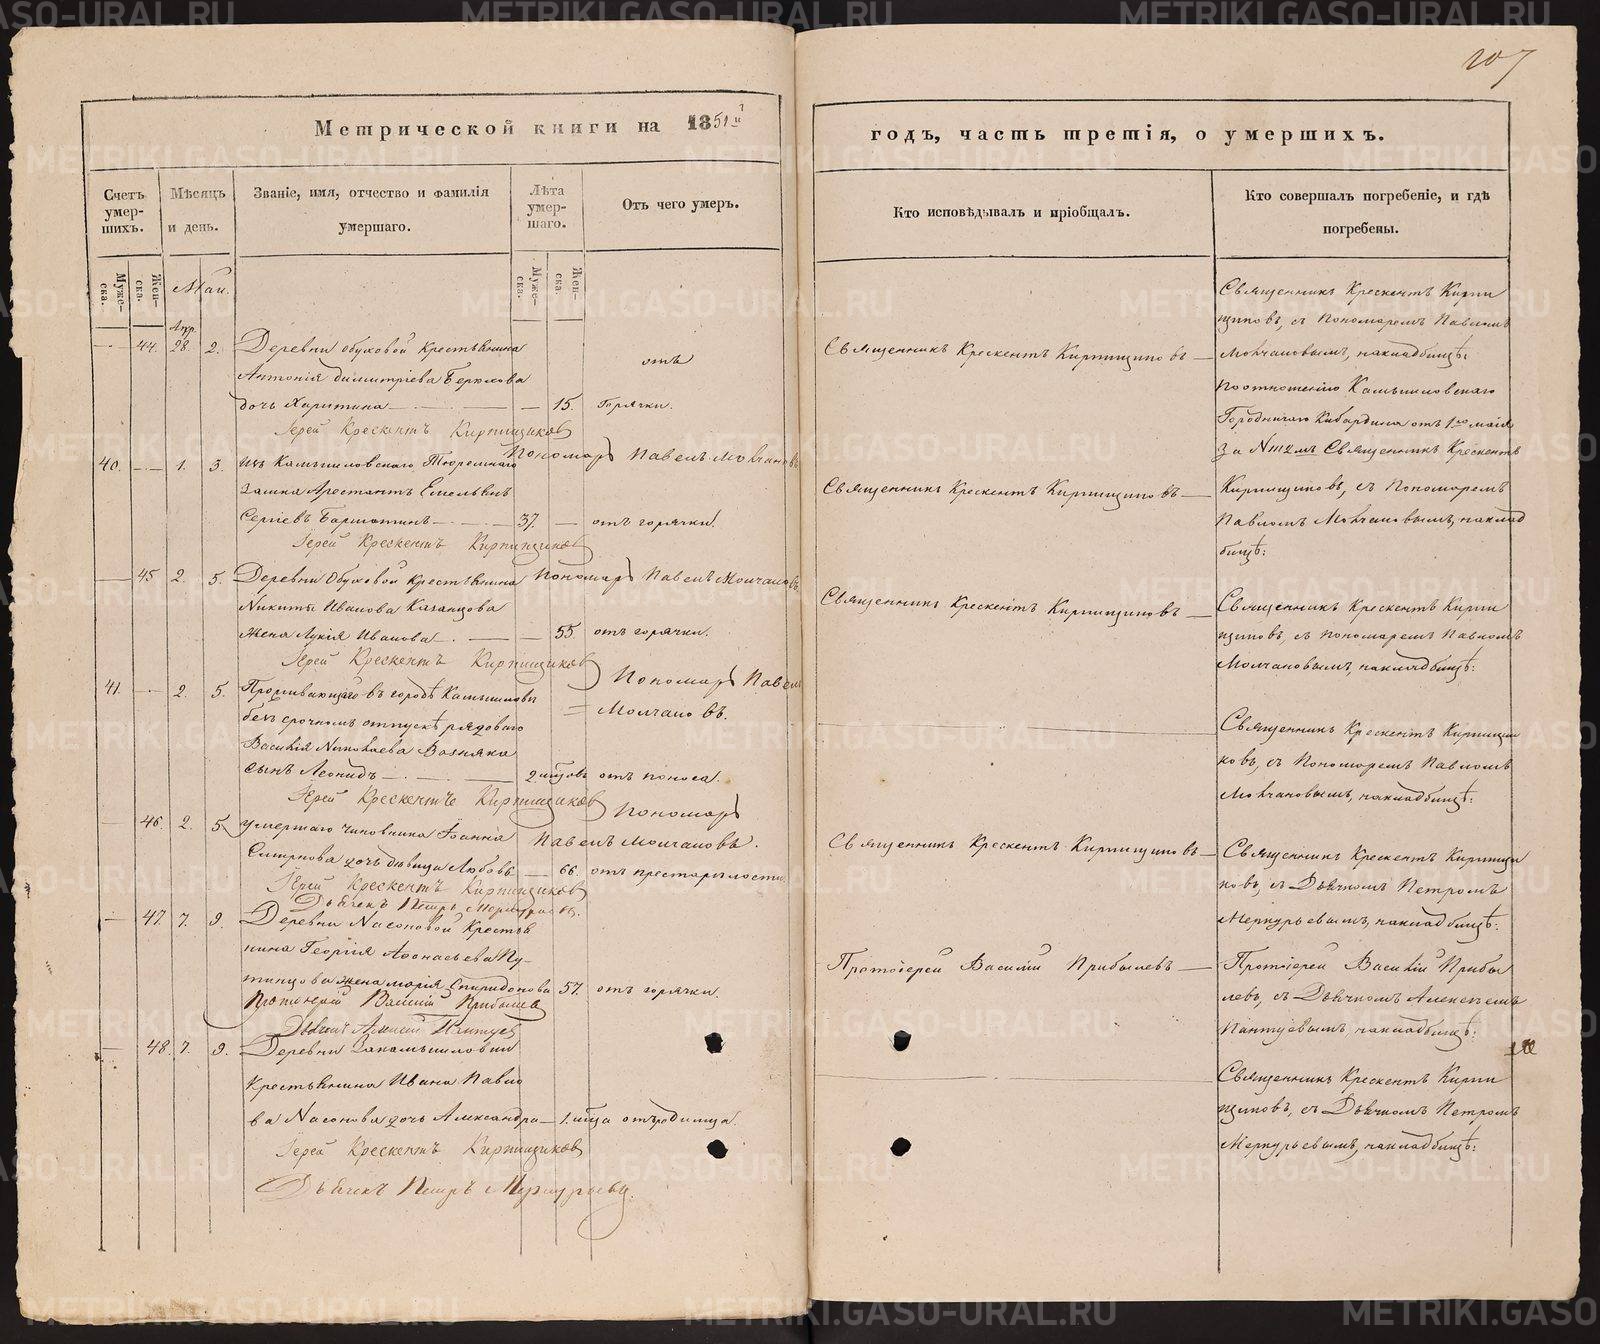 207
Метрической книги на 1851й
годъ, часть третія, о умершихъ.
Счетъ умер-шихъ.
Мѣсяцъ и день.
Званіе, имя, отчество и фамилія умершаго.
Лѣта умер-шаго.
Отъ чего умеръ.
Кто исповѣдывалъ и пріобщалъ.
Кто совершалъ погребеніе, и гдѣ погребены.
Муже-ска.
Жен-ска.
Май.
Муже-ска.
Жен-ска.
Апр.
44. 28. 2. Деревни Обуховой Крестьянина
Антонія Димитріева Берюхова
дочь Харитина — 15. отъ горячки.
Священникъ Крескентъ Кирпищиковъ
Священникъ Крескентъ Кирпи
щиковъ, съ Пономаремъ Павломъ
Молчановымъ, на кладбищѣ.
Іерей Крескентъ Кирпищиковъ
Пономарь Павелъ Молчановъ
40. 1. 3. Изъ Камышловскаго Тюремнаго
замка Арестантъ Емельянъ
Сергіевъ — 37. — отъ горячки.
Священникъ Крескентъ Кирпищиковъ
По отношенію Камышловскаго
Городничаго Кибардина отъ 1го мая
за Священникъ Крескентъ
Кирпищиковъ, съ Пономаремъ
Павломъ Молчановымъ, на клад
бищѣ.
Іерей Крескентъ Кирпищиковъ
Пономарь Павелъ Молчановъ
45 2. 5. Деревни Обуховой Крестьянина
Никиты Иванова Казанцова
жена Лукія Иванова — 55 отъ горячки.
Священникъ Крескентъ Кирпищиковъ
Священникъ Крескентъ Кирпи
щиковъ, съ Пономаремъ Павломъ
Молчановымъ, на кладбищѣ.
Іерей Крескентъ Кирпищиковъ
Пономарь Павелъ
Молчановъ.
41. 2. 5. Проживающаго въ городѣ Камышловѣ
безсрочномъ отпускѣ рядоваго
Василія Николаева Возняка
сынъ Леонидъ — 2 мѣсцовъ отъ поноса.
Священникъ Крескентъ Кирпищи
ковъ, съ Пономаремъ Павломъ
Молчановымъ, на кладбищѣ.
Іерей Крескентъ Кирпищиковъ
Пономарь
Павелъ Молчановъ.
46. 2. 5. Умершаго чиновника Іоанна
Смирнова дочь дѣвица Любовь — 66. отъ престарѣлости
Священникъ Крескентъ Кирпищиковъ
Священникъ Крескентъ Кирпищи
ковъ, съ Дьячкомъ Петромъ
Меркурьевымъ, на кладбищѣ.
Іерей Крескентъ Кирпищиковъ
Дьячекъ Петръ Меркурьевъ.
47. 7. 9. Деревни Насоновой Крестья
нина Георгія Аѳонасьева Пу-
тинцова жена Марія Спиридонова 57. отъ горячки.
Протоіерей Василій Прибылевъ
Протоіерей Василій Прибы
левъ, съ Дьячкомъ Алексѣемъ
Пантуевымъ, на кладбищѣ.
Протоіерей Василій Прибылевъ
Дьячекъ Алексѣй Пантуевъ
48. 7. 9. Деревни Закамышловки
Крестьянина Ивана Павло
ва Насонова дочь Александра — 1. мѣсца отъ родимца.
Священникъ Крескентъ Кирпи
щиковъ, съ Дьячкомъ Петромъ
Меркурьевымъ, на кладбищѣ.
Іерей Крескентъ Кирпищиковъ
Дьячекъ Петръ Меркурьевъ.
METRIKI.GASO-URAL.RU